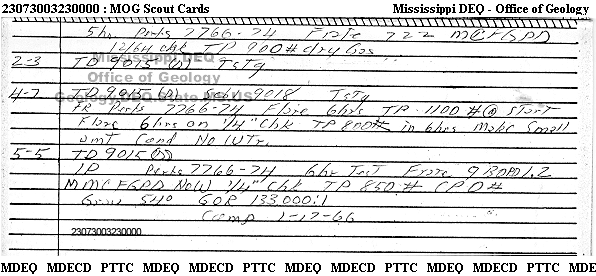 23073003230000 : MOG Scout Cards Mississippi DEQ - Office of Geology
5 hr Perfs 7766-74 Frate 722 MCFGPD
12/64 chk TP 900# dry Gas
Mississippi DEQ
2-3 TD 9015 (D) TsTg
Office of Geology
4-7 TD 9015 (D) 9018 TsTg
FR Perfs 7766-74 Flare 6 hrs TP 1100# @ start
Flare 6 hrs on 1/4" Chk TP 800# in 6 hrs Make Small
amt Cond No WTr.
5-5 TD 9015 (D)
IP Perfs 7766-74 6 hr Test Frate 9 BOPD 1.2
MMCFGPD No W 1/4" Chk TP 850# CP 0#
Grav 54° GOR 133,000:1
Comp 1-17-66
23073003230000
MDEQ MDECD PTTC MDEQ MDECD PTTC MDEQ MDECD PTTC MDEQ MDECD PTTC MDE